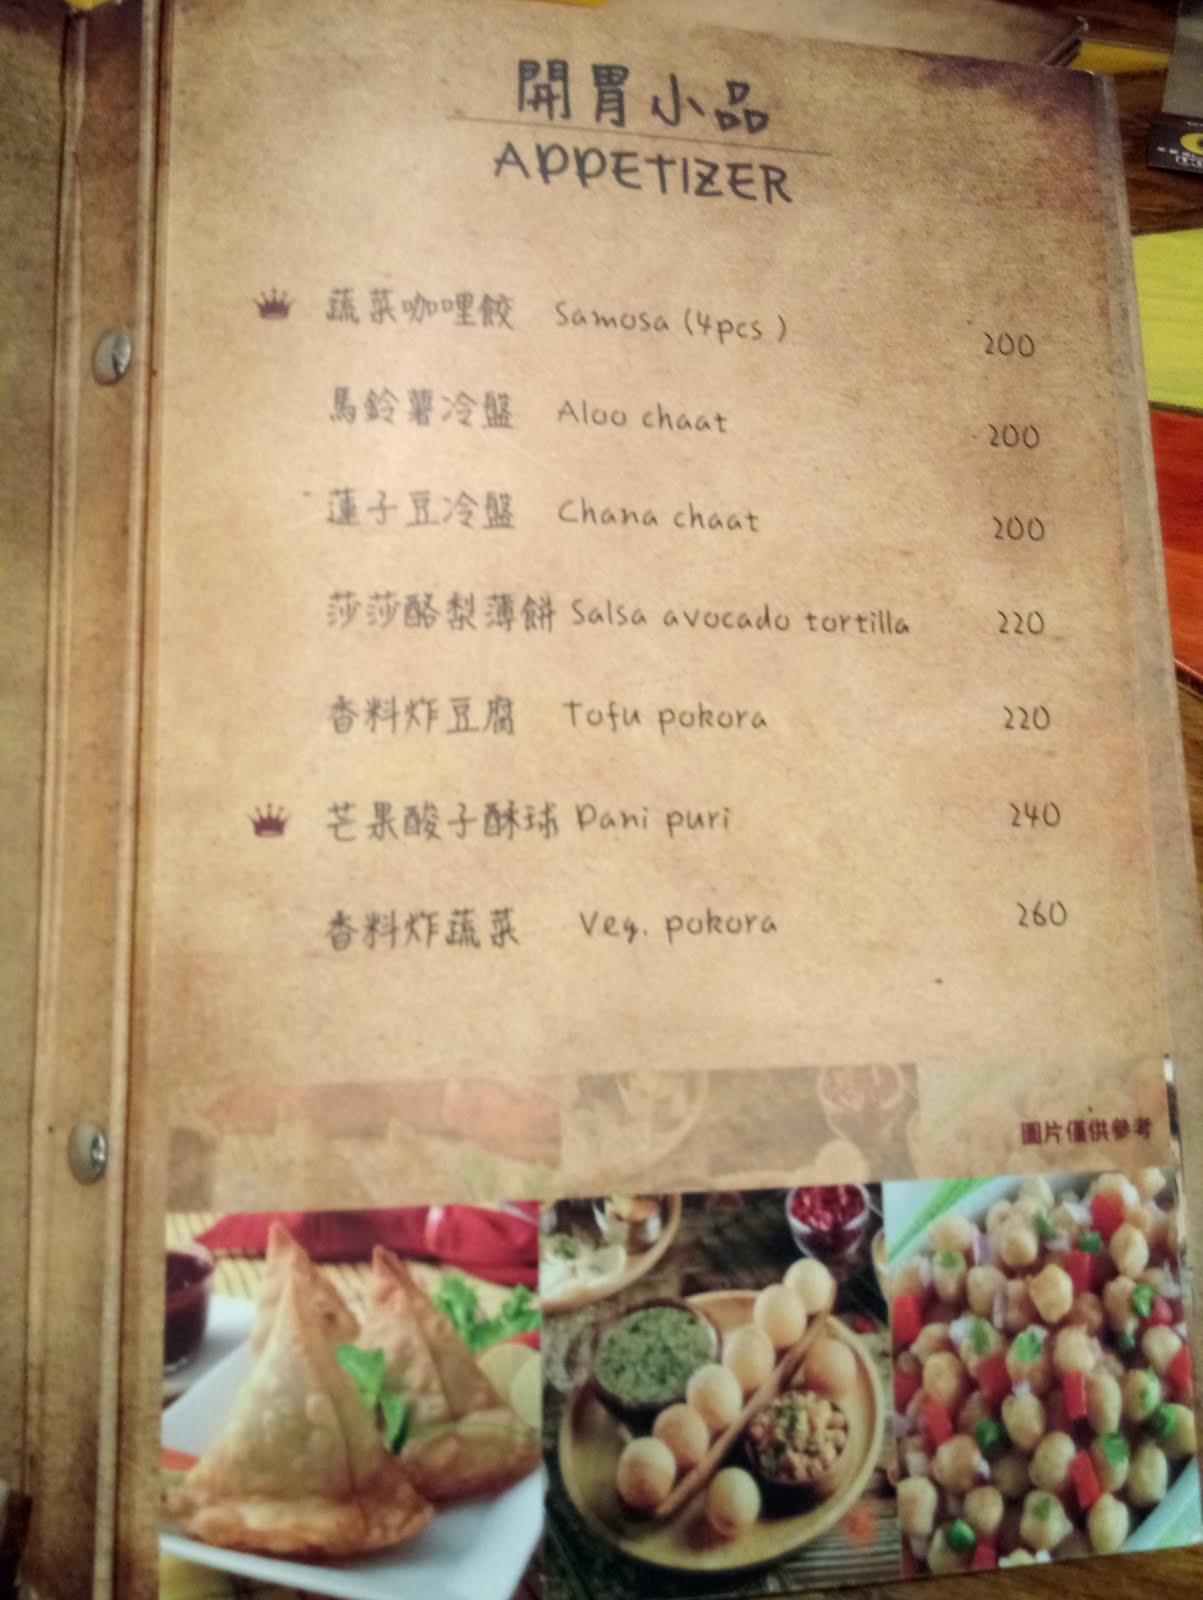 開胃小品
APPETIZER
蔬菜咖哩餃 Samosa (4pcs ) 200
馬鈴薯冷盤 Aloo chaat 200
蓮子豆冷盤 Chana chaat 200
莎莎酪梨薄餅 Salsa avocado tortilla 220
香料炸豆腐 Tofu pokora 220
芒果酸子酥球 Pani puri 240
香料炸蔬菜 Veg. pokora 260
圖片僅供參考